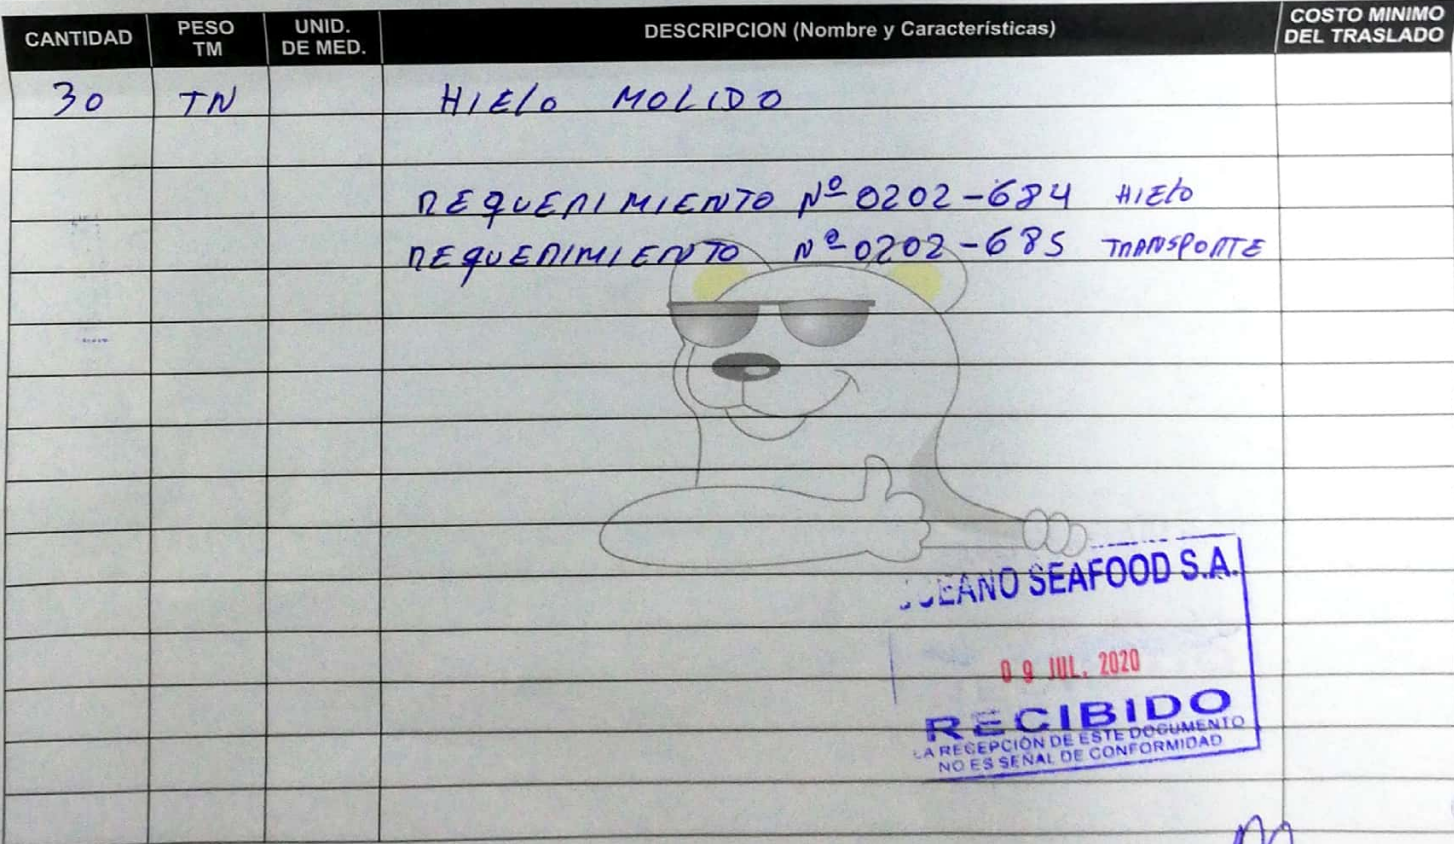 CANTIDAD PESO TM UNID. DE MED. DESCRIPCION (Nombre y Características) COSTO MINIMO DEL TRASLADO
30 TN HIElo MOLIDO
REQUERIMIENTO Nº 0202-684 HIElo
REQUERIMIENTO Nº 0202-685 TRANSPORTE
SEAFOOD S.A.
09 JUL. 2020
RECIBIDO
LA RECEPCIÓN DE ESTE DOCUMENTO
NO ES SEÑAL DE CONFORMIDAD